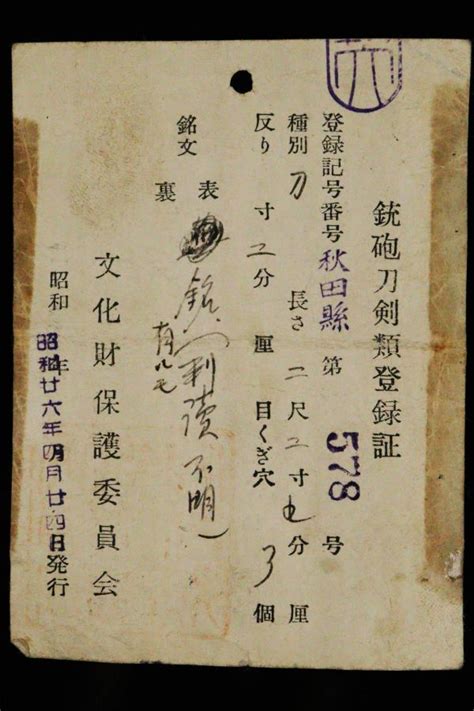 銃砲刀剣類登録証
登録記号番号 秋田縣 第 578 号
種別 刀 長さ 二尺二寸 分 厘
反り 寸 二分 厘 目くぎ穴 3 個
銘文 表 銘 判読不明
裏
文化財保護委員会
昭和 年
昭和廿六年四月廿四日発行